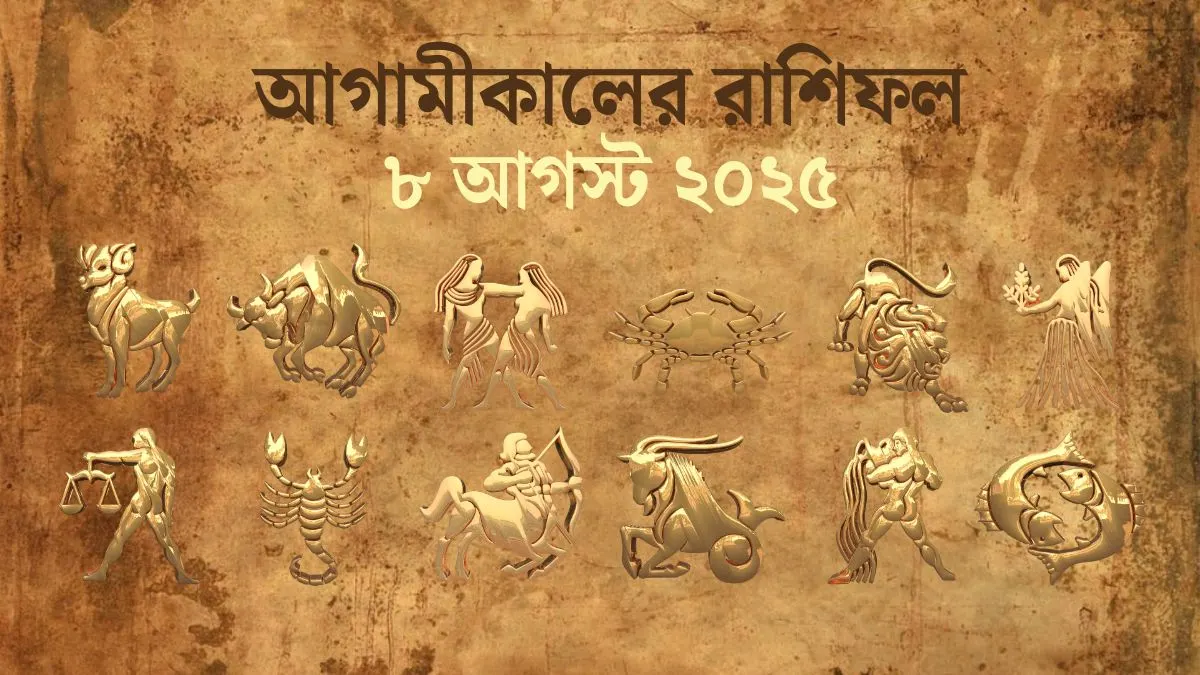 আগামীকালের রাশিফল
৮ আগস্ট ২০২৫